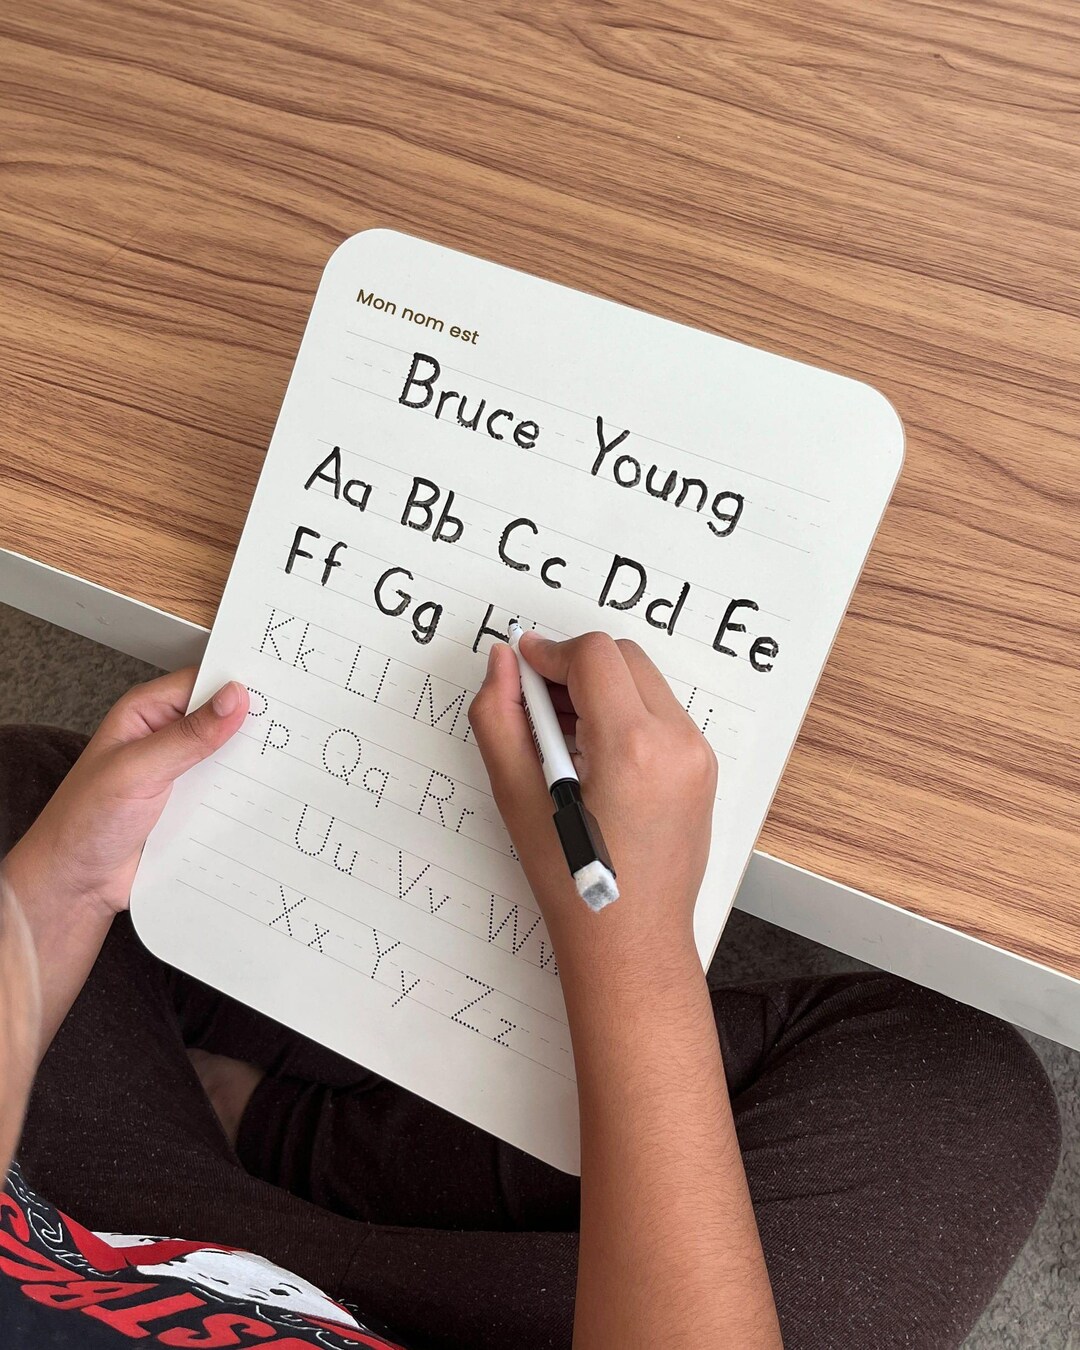 Mon nom est
Bruce Young
Aa Bb Cc Dd Ee
Ff Gg H
Kk Ll M
Pp Qq Rr
Uu Vv Ww
Xx Yy Zz